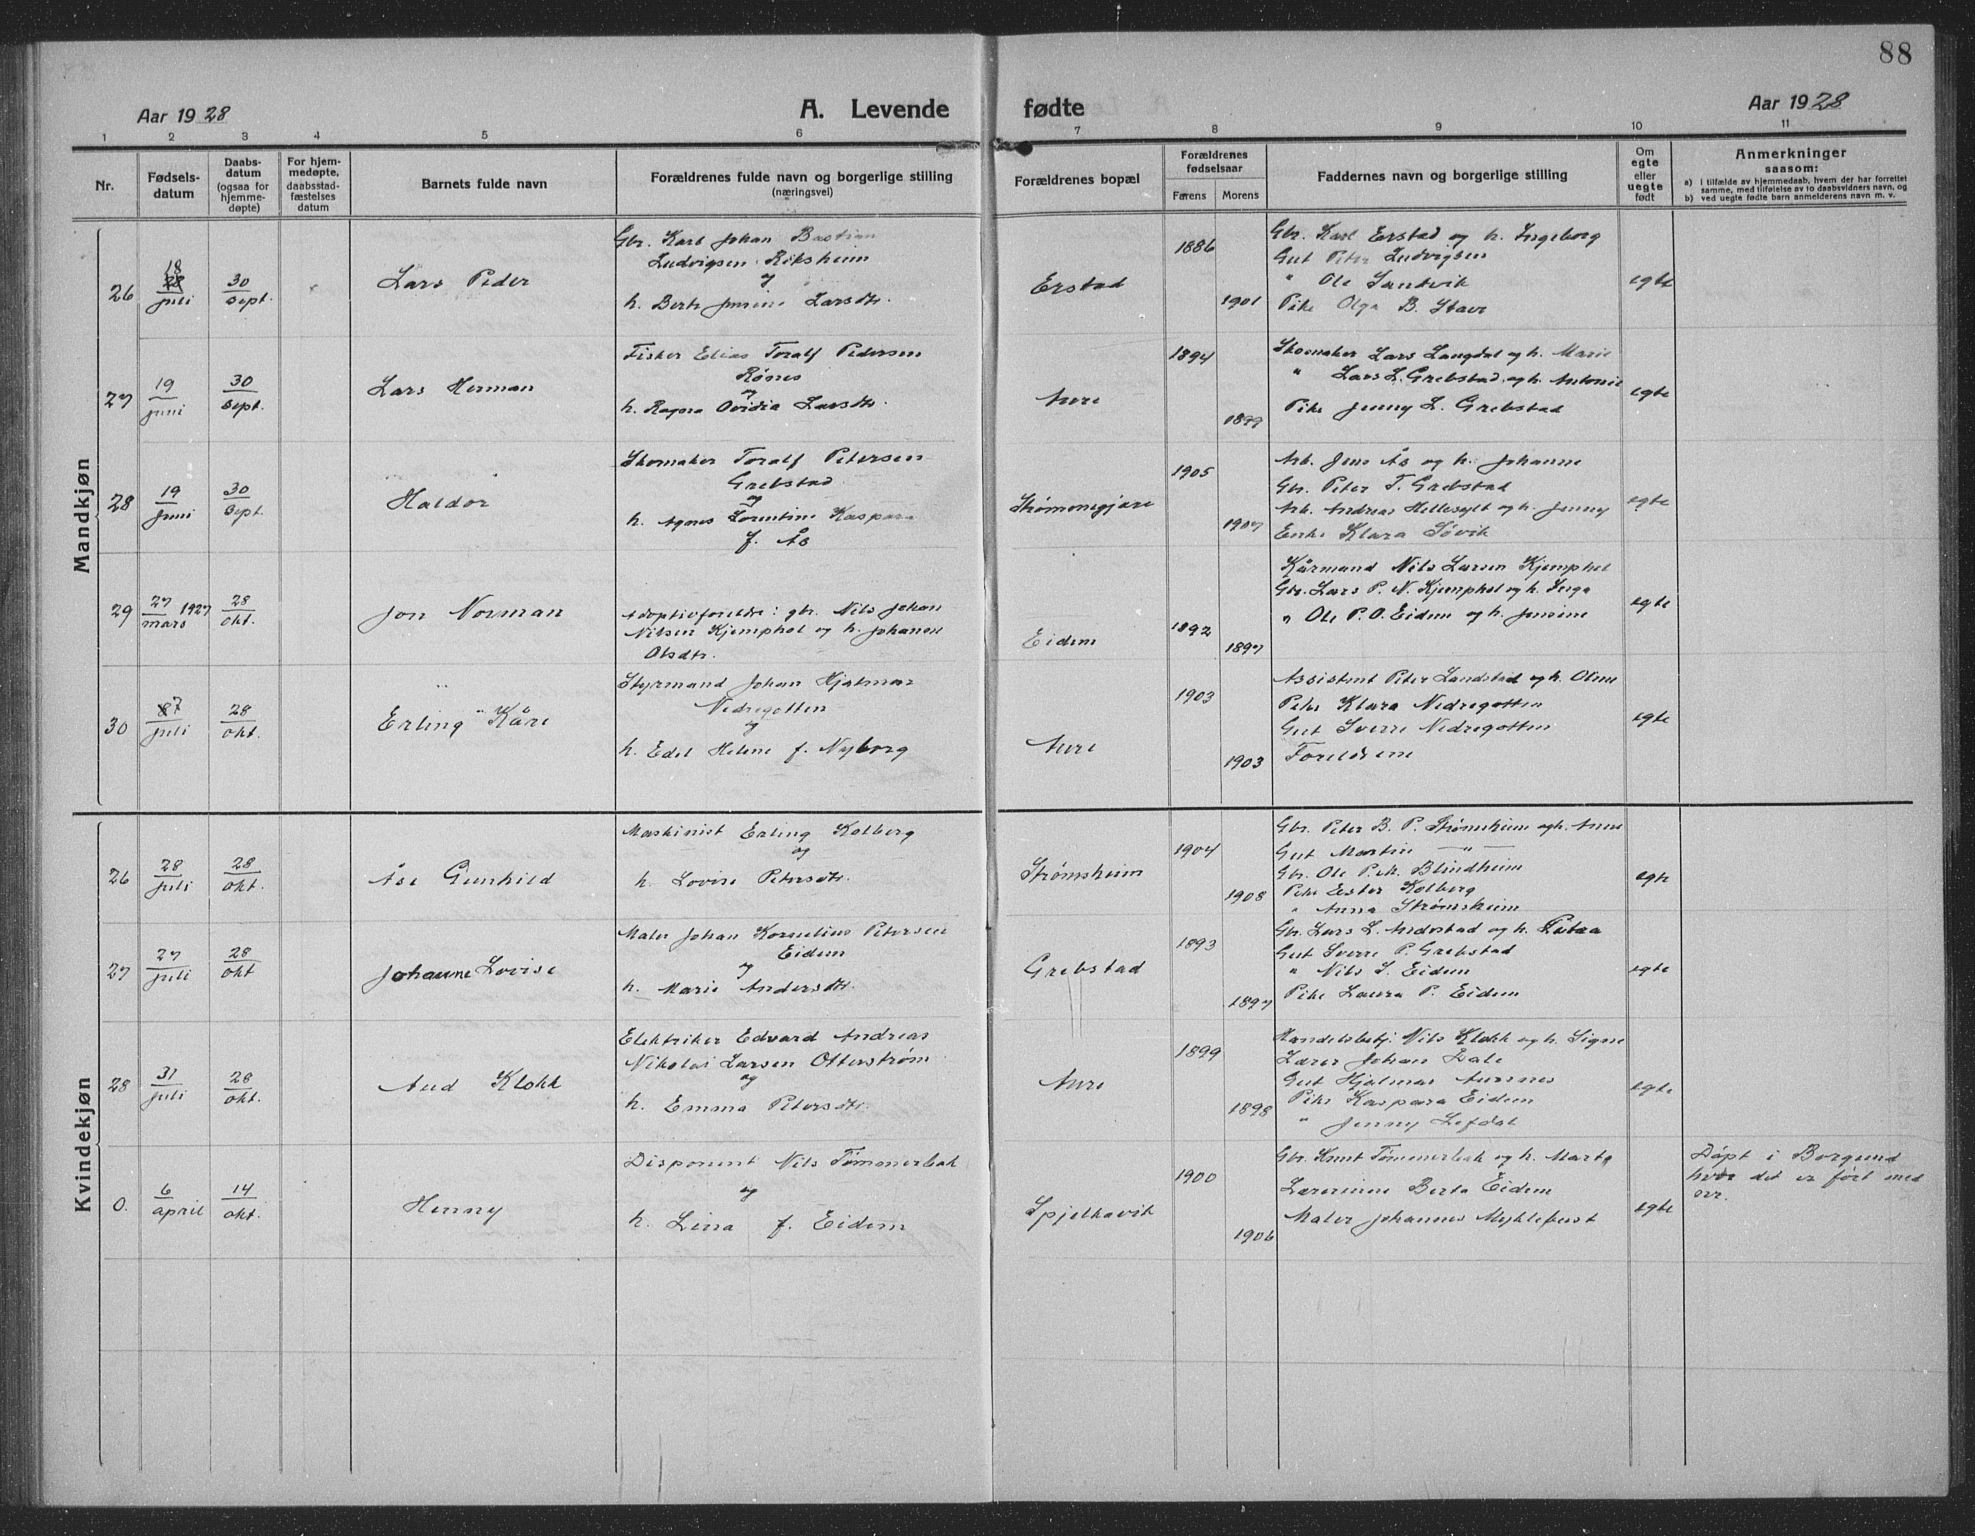 88
Aar 1928
A. Levende fødte
Aar 1928
1 2 3 4 5 6 7 8 9 10 11
Nr.
Fødsels-
datum
Daabs-
datum
(ogsaa for
hjemme-
døpte)
For hjem-
medøpte,
daabsstad-
fæstelses
datum
Barnets fulde navn
Forældrenes fulde navn og borgerlige stilling
(næringsvei)
Forældrenes bopæl
Forældrenes
fødselsaar
Farens Morens
Faddernes navn og borgerlige stilling
Om
egte
eller
uegte
født
Anmerkninger
saasom:
a) I tilfælde av hjemmedaab, hvem der har forrettet
samme, med tilføielse av to daabsvidners navn, og
b) ved uegte født barn anmelderens navn m. v.
Mandkjøn
26
18
28
juli
30
sept.
Lars Peder
Gbr. Karl Johan Bastian
Ludvigsen Riksheim
og
h. Berte Jensine Larsdtr.
Erstad
1886
1901
Gbr. Karl Erstad og h. Ingeborg
Gut Peter Ludvigsen
" Ole Sandvik
Pike Olga B. Stave
egte
27
19
juni
30
sept.
Lars Herman
Fisker Elias Toralf Pedersen
Rønes
og
h. Ragna Ovidia Larsdtr.
Aure
1894
1899
Skomaker Lars Langdal og h. Marie
" Lars L. Grebstad og h. Antonie
Pike Jenny L. Grebstad
egte
28
19
juni
30
sept.
Haldor
Skomaker Toralf Petersen
Grebstad
og
h. Agnes Lorentine Kaspara
f. Ås
Strømmegjære
1905
1907
Arb. Jens Ås og h. Johanne
Gbr. Peter T. Grebstad
Arb. Andreas Hellesylt og h. Jenny
Enke Klara Søvik
egte
29
27 1927
mars
28
okt.
Jon Norman
Adoptivforeldre: gbr. Nils Johan
Nilsen Kjemphol og h. Johanne
Olsdtr.
Eidem
1892
1897
Kårmand Nils Larsen Kjemphol
Gbr. Lars P. N. Kjemphol og h. Inga
" Ole P. O. Eidem og h. Jensine
egte
30
8 7
juli
28
okt.
Erling Kåre
Styrmand Johan Hjalmar
Nedregotten
og
h. Edel Helene f. Nyborg
Aure
1903
1903
Assistent Peter Landstad og h. Oline
Pike Klara Nedregotten
Gut Sverre Nedregotten
Foreldrene
egte
Kvindekjøn
26
28
juli
28
okt.
Åse Gunhild
Maskinist Erling Kolberg
og
h. Lovise Petersdtr.
Strømsheim
1904
1908
Gbr. Peter B. P. Strømsheim og h. Anne
Gut Martin — " —
Gbr. Ole Pet. Blindheim
Pike Ester Kolberg
" Anna Strømsheim
egte
27
27
juli
28
okt
Johanne Lovise
Maler Johan Kornelius Petersen
Eidem
og
h. Marie Andersdtr.
Grebstad
1893
1897
Gbr. Lars L. Andestad og h. Petra
Gut Sverre P. Grebstad
" Nils S. Eidem
Pike Laura P. Eidem
egte
28
31
juli
28
okt.
Aud Klokk
Elektriker Edvard Andreas
Nikolai Larsen Otterstrøm
og
h. Emma Petersdtr.
Aure
1899
1898
Handelsbetj. Nils Klokk og h. Signe
Lærer Johan Dale
Gut Hjalmar Aursnes
Pike Kaspara Eidem
" Jenny Lefdal
egte
0.
6
april
14
okt.
Henny
Disponent Nils Tømmerbak
og
h. Lina f. Eidem
Spjelkavik
1900
1906
Gbr. Knut Tømmerbak og h. Marta
Lærerinne Berta Eidem
Maler Johannes Myklebust
egte
Døpt i Borgund
hvor det er ført med
nr.